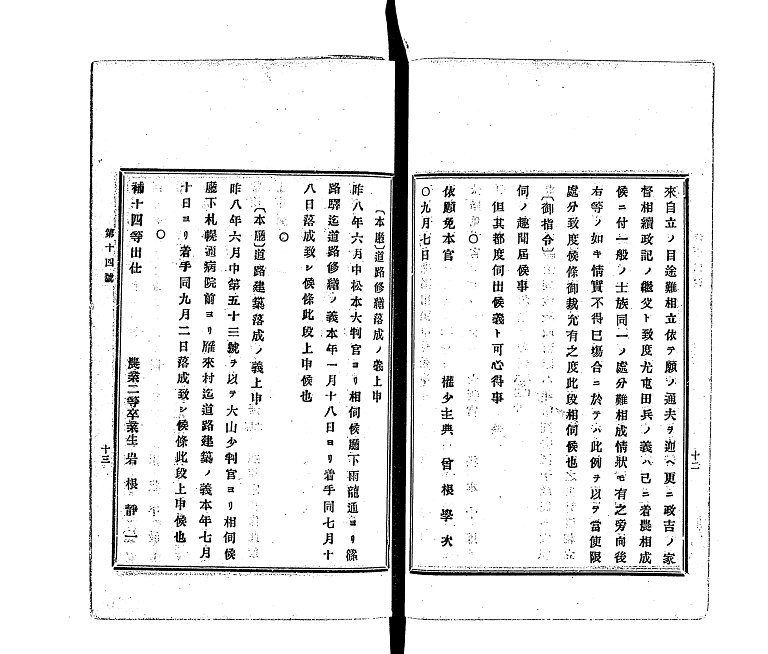 來自立ノ目途難相立依テ願ノ通夫ヲ迎ヘ更ニ政吉ノ家
督相續政記ノ繼父ト致度尤屯田兵ノ義ハ已ニ着農相成
候ニ付一般ノ士族同一ノ處分難相成情狀モ有之旁向後
右等ノ如キ情實不得已塲合ニ於テハ此例ヲ以テ當使限
處分致度候條御裁允有之度此段相伺候也
〔御指令〕
伺ノ趣聞屆候事
但其都度伺出候義ト可心得事
○
依願免本官 權少主典 曾根學
○九月七日
十二
〔本廳〕道路修繕落成ノ義上申
昨八年六月中松本大判官ヨリ相伺候廳下雨龍通ヨリ篠
路驛迄道路修繕ノ義本年一月十八日ヨリ着手同七月十
八日落成致シ候條此段上申候也
○
〔本廳〕道路建築落成ノ義上申
昨八年六月中第五十三號ヲ以テ大山少判官ヨリ相伺候
廳下札幌通病院前ヨリ雁來村迄道路建築ノ義本年七月
十日ヨリ着手同九月二日落成致シ候條此段上申候也
○
補十四等出仕 農業二等卒業生 岩根靜一
第十四號
十三